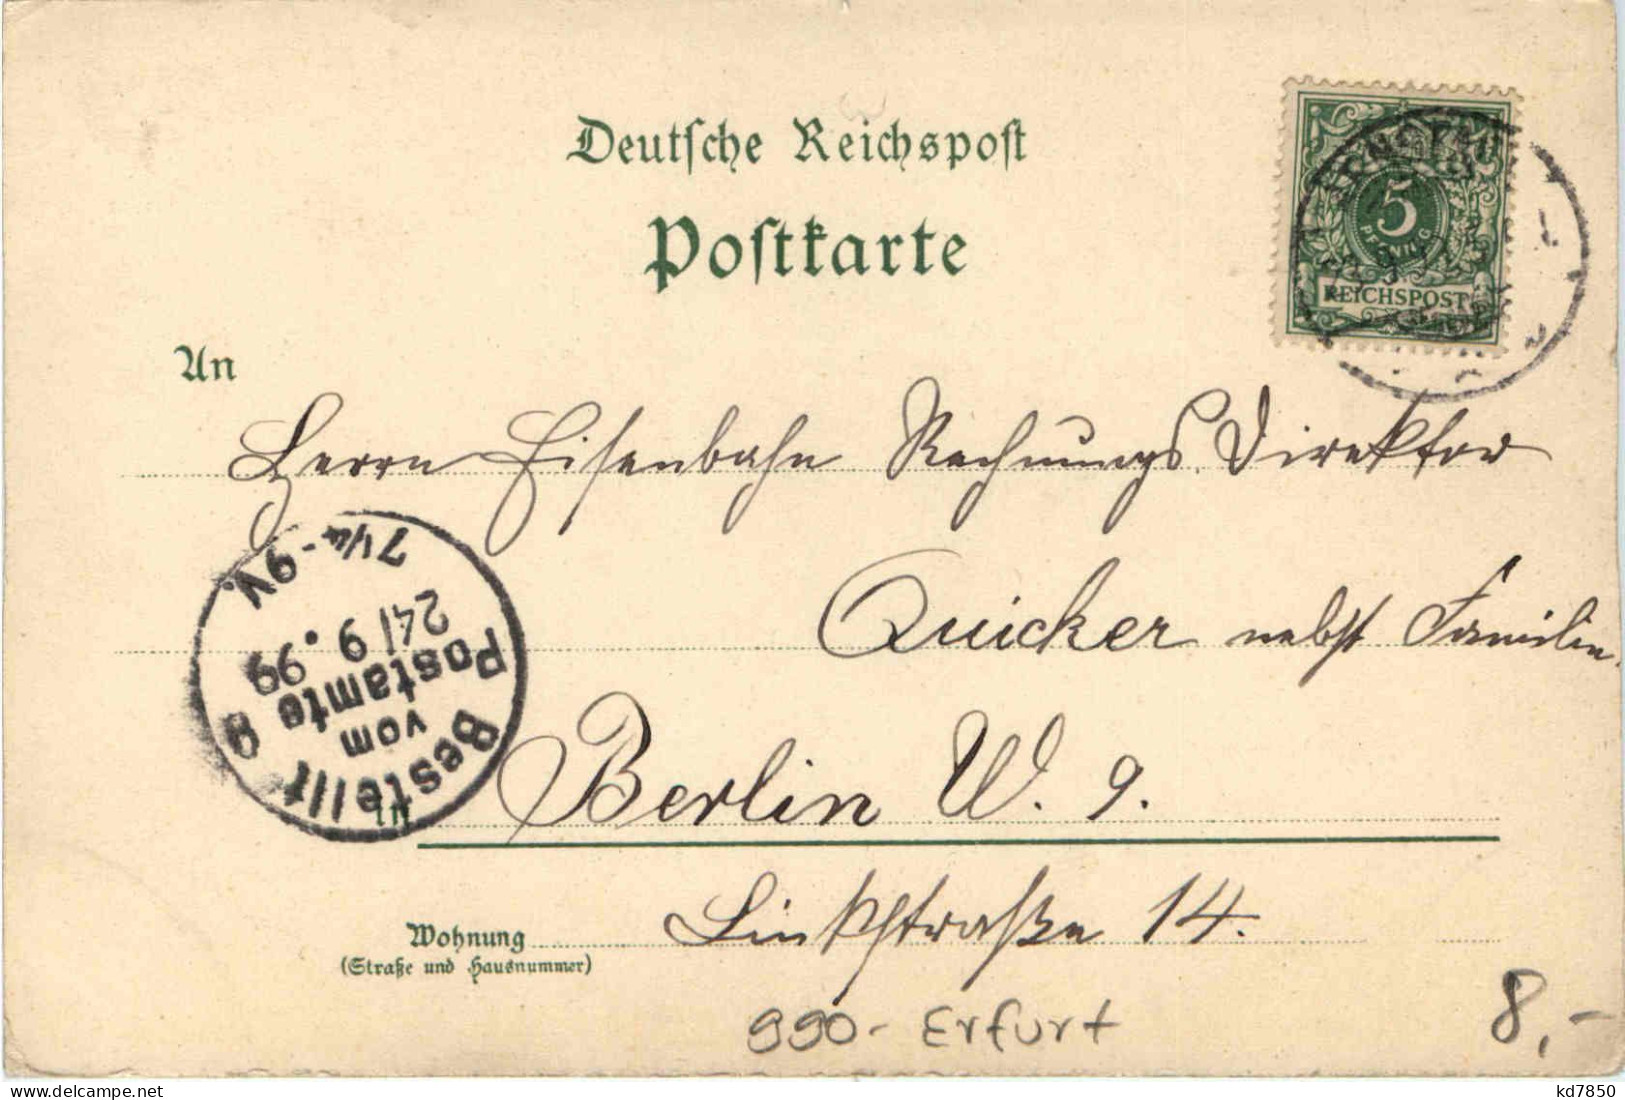 Deutsche Reichspost
Postkarte
5
PFENNIG
REICHSPOST
An
Herrn Eisenbahn Rechnungs Direktor
Quicker nebst Familie
Bestellt
vom
Postamte 9
24/9.99
7 1/4-9V.
in
Berlin W. 9.
Wohnung
(Straße und Hausnummer)
Linkstraße 14.
990- Erfurt
8,-
www.delcampe.net
kd7850